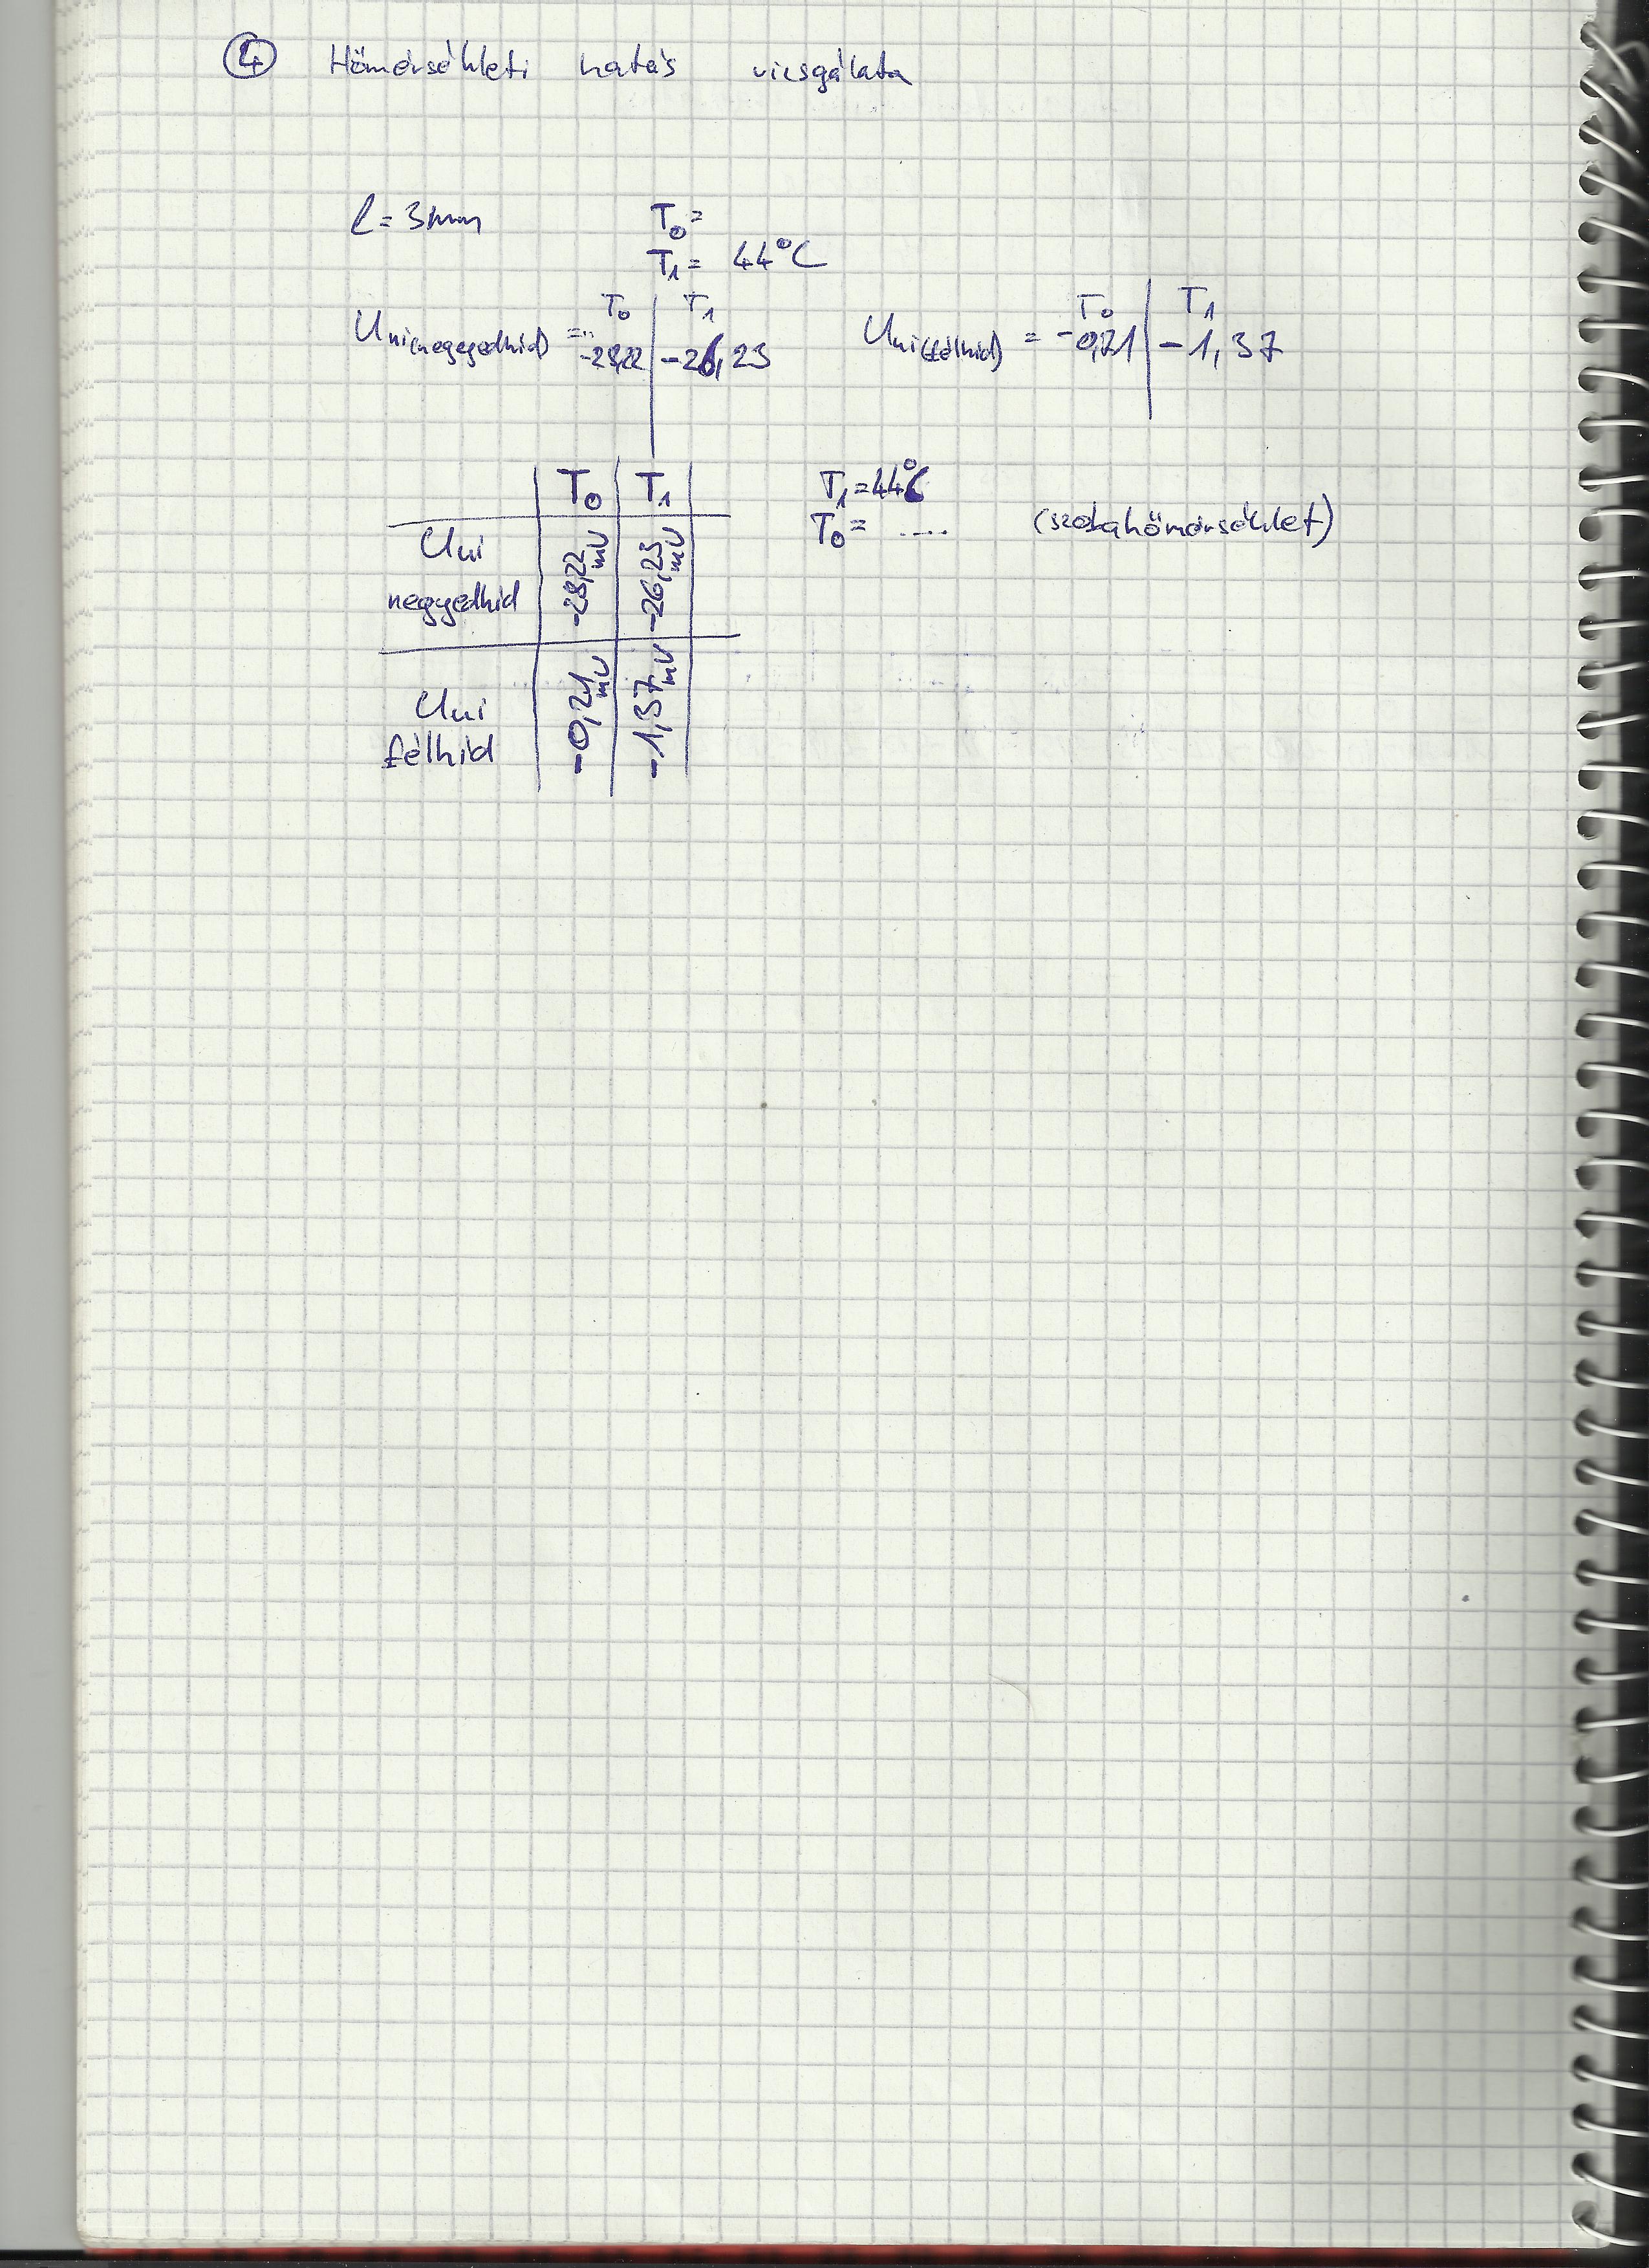 ④ Hőmérsékleti hatás vizsgálata
l = 3mm
T₀ =
T₁ = 44°C
T₀ | T₁
Uki(negyedhíd) = -28,22 | -26,23
T₀ | T₁
Uki(félhíd) = -0,21 | -1,37
T₀ | T₁
Uki negyedhíd | -28,22 mV | -26,23 mV
Uki félhíd | -0,21 mV | -1,37 mV
T₁ = 44°C
T₀ = ..... (szobahőmérséklet)